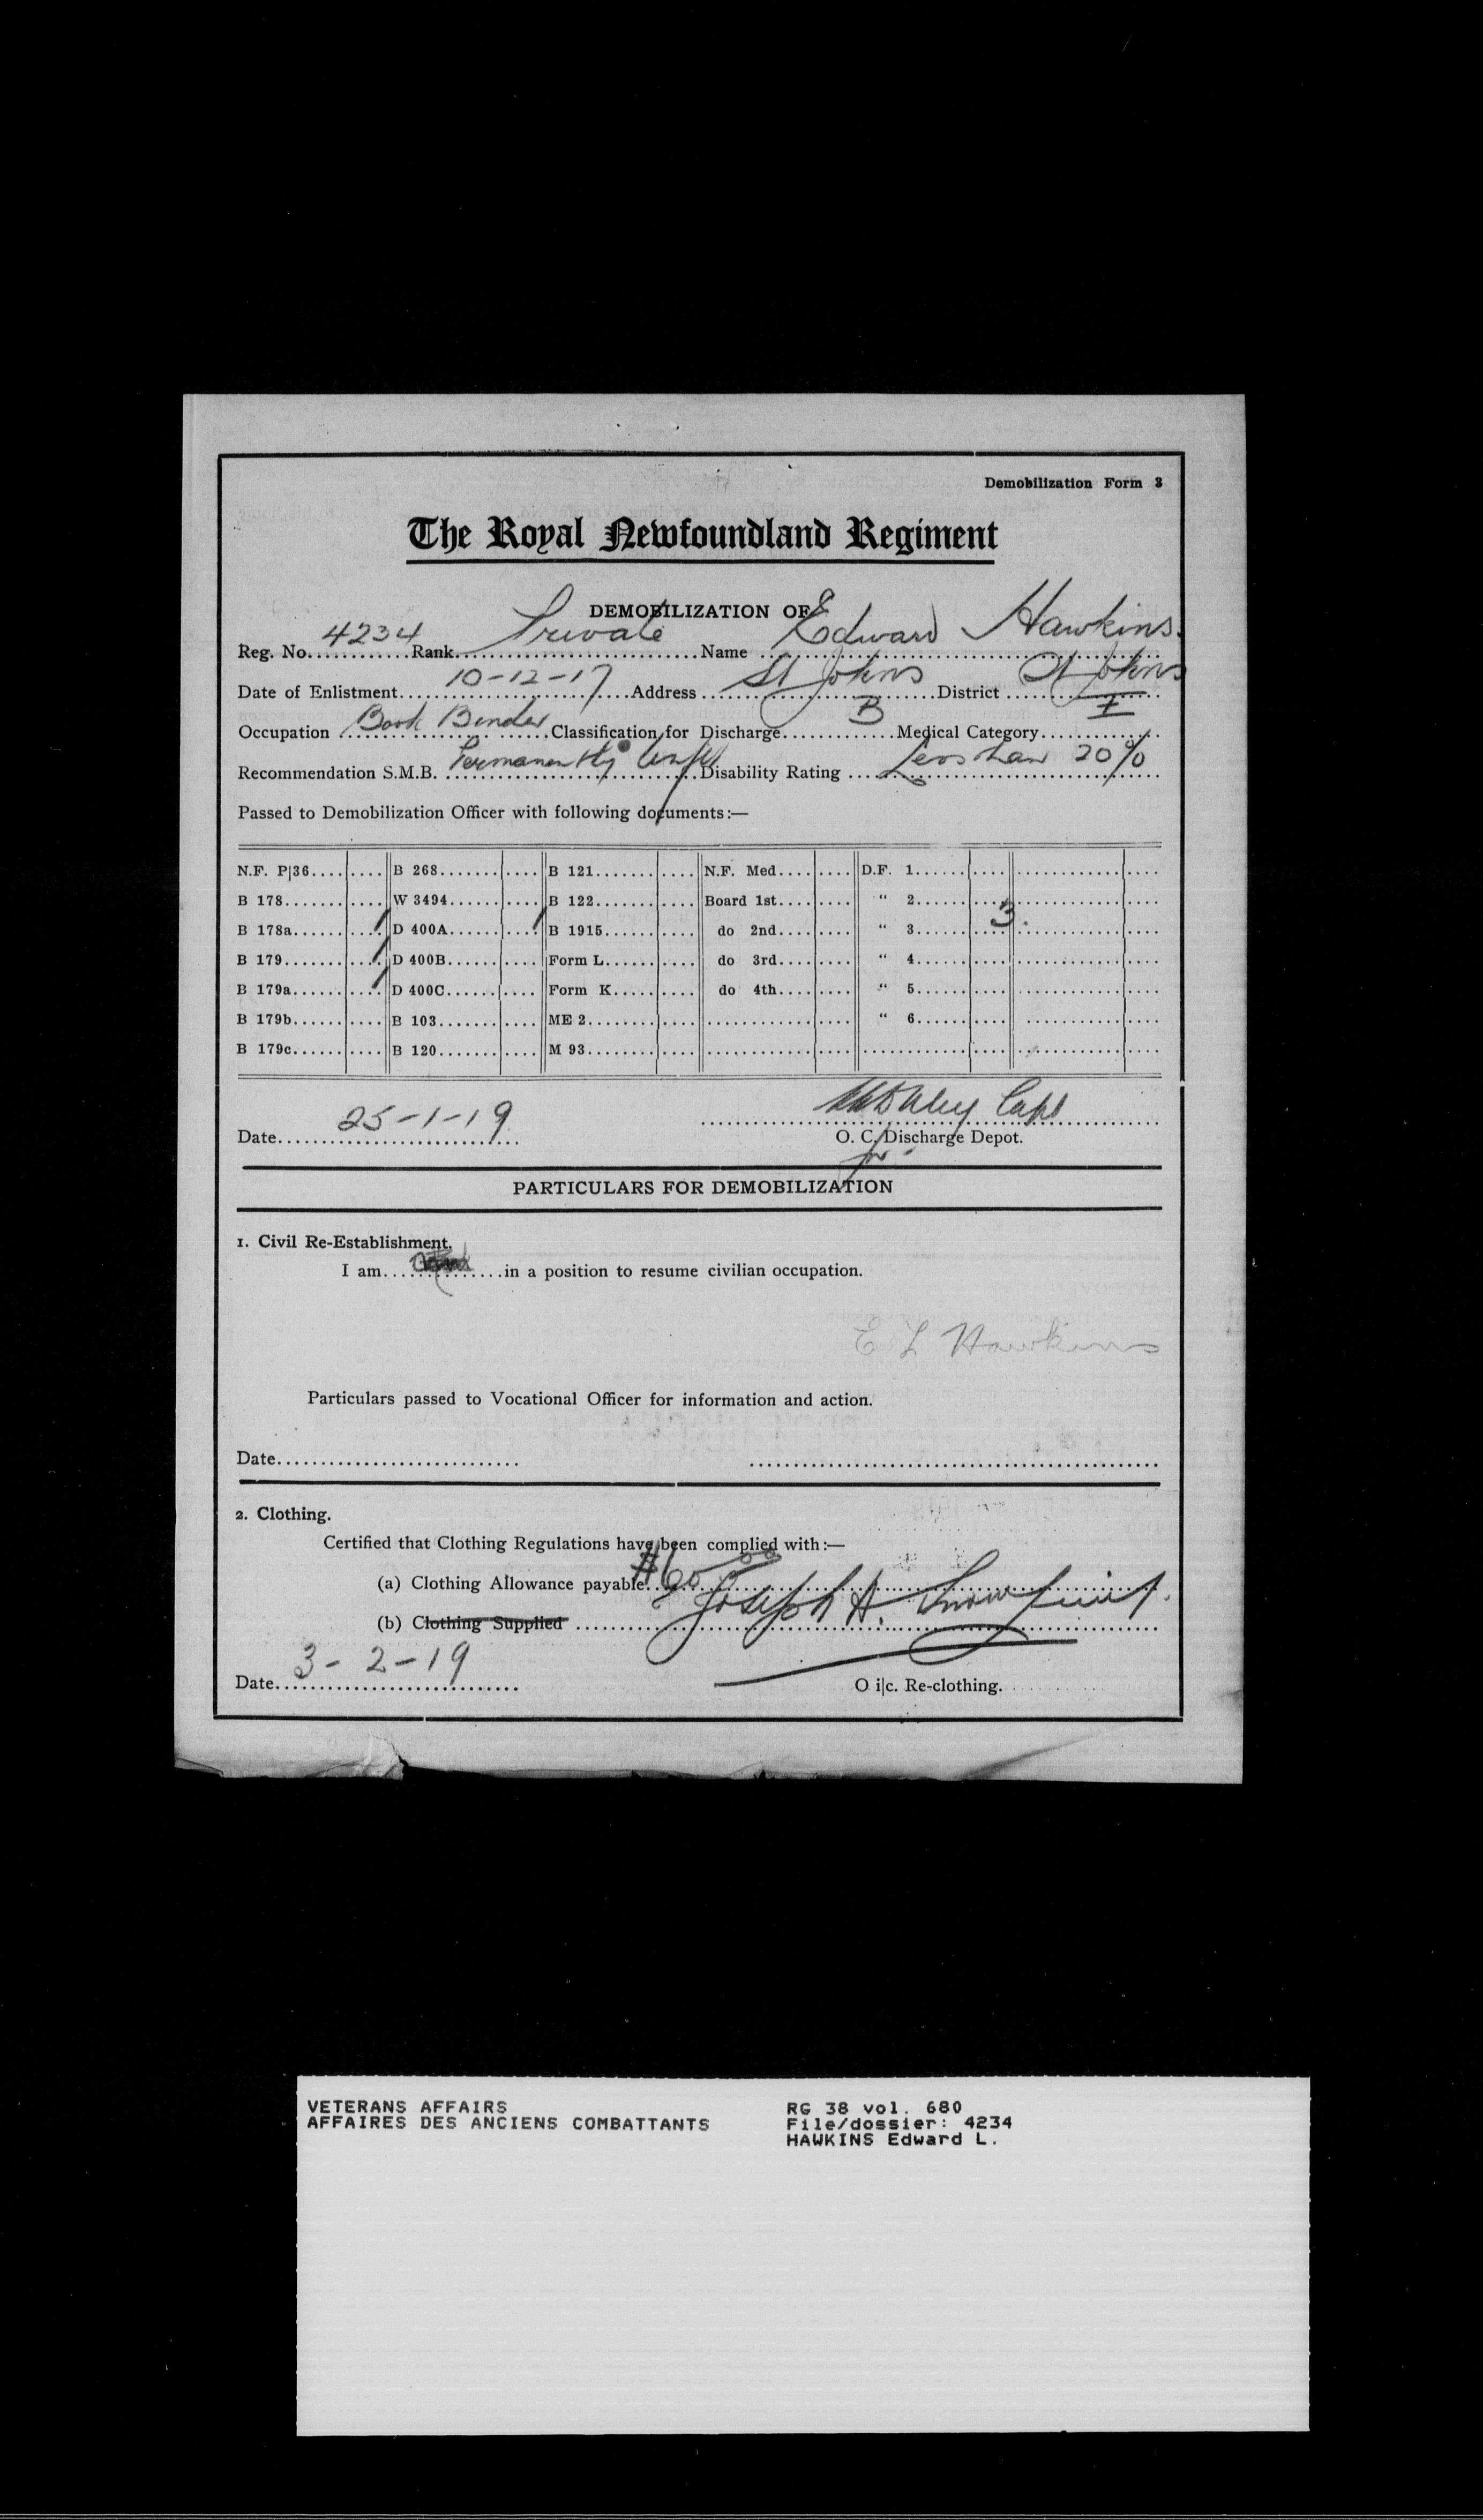 Demobilization Form 3
The Royal Newfoundland Regiment
DEMOBILIZATION OF
Reg. No. 4234 Rank Private Name Edward Hawkins.
Date of Enlistment 10-12-17 Address St Johns District St Johns
Occupation Book Binder Classification for Discharge B Medical Category I
Recommendation S.M.B. Permanently Unfit Disability Rating Less than 20%
Passed to Demobilization Officer with following documents:—
N.F. P|36 B 268 B 121 N.F. Med. D.F. 1
B 178 W 3494 B 122 Board 1st " 2
B 178a 1 D 400A 1 B 1915 do 2nd " 3 3.
B 179 1 D 400B Form L do 3rd " 4
B 179a 1 D 400C Form K do 4th " 5
B 179b B 103 ME 2 " 6
B 179c B 120 M 93
Date 25-1-19 Capt
O. C. Discharge Depot.
for
PARTICULARS FOR DEMOBILIZATION
1. Civil Re-Establishment.
I am in a position to resume civilian occupation.
E L Hawkins
Particulars passed to Vocational Officer for information and action.
Date
2. Clothing.
Certified that Clothing Regulations have been complied with:—
(a) Clothing Allowance payable $60 00
(b) Clothing Supplied Joseph A.
Date 3-2-19 O i|c. Re-clothing.
VETERANS AFFAIRS RG 38 vol. 680
AFFAIRES DES ANCIENS COMBATTANTS File/dossier: 4234
HAWKINS Edward L.